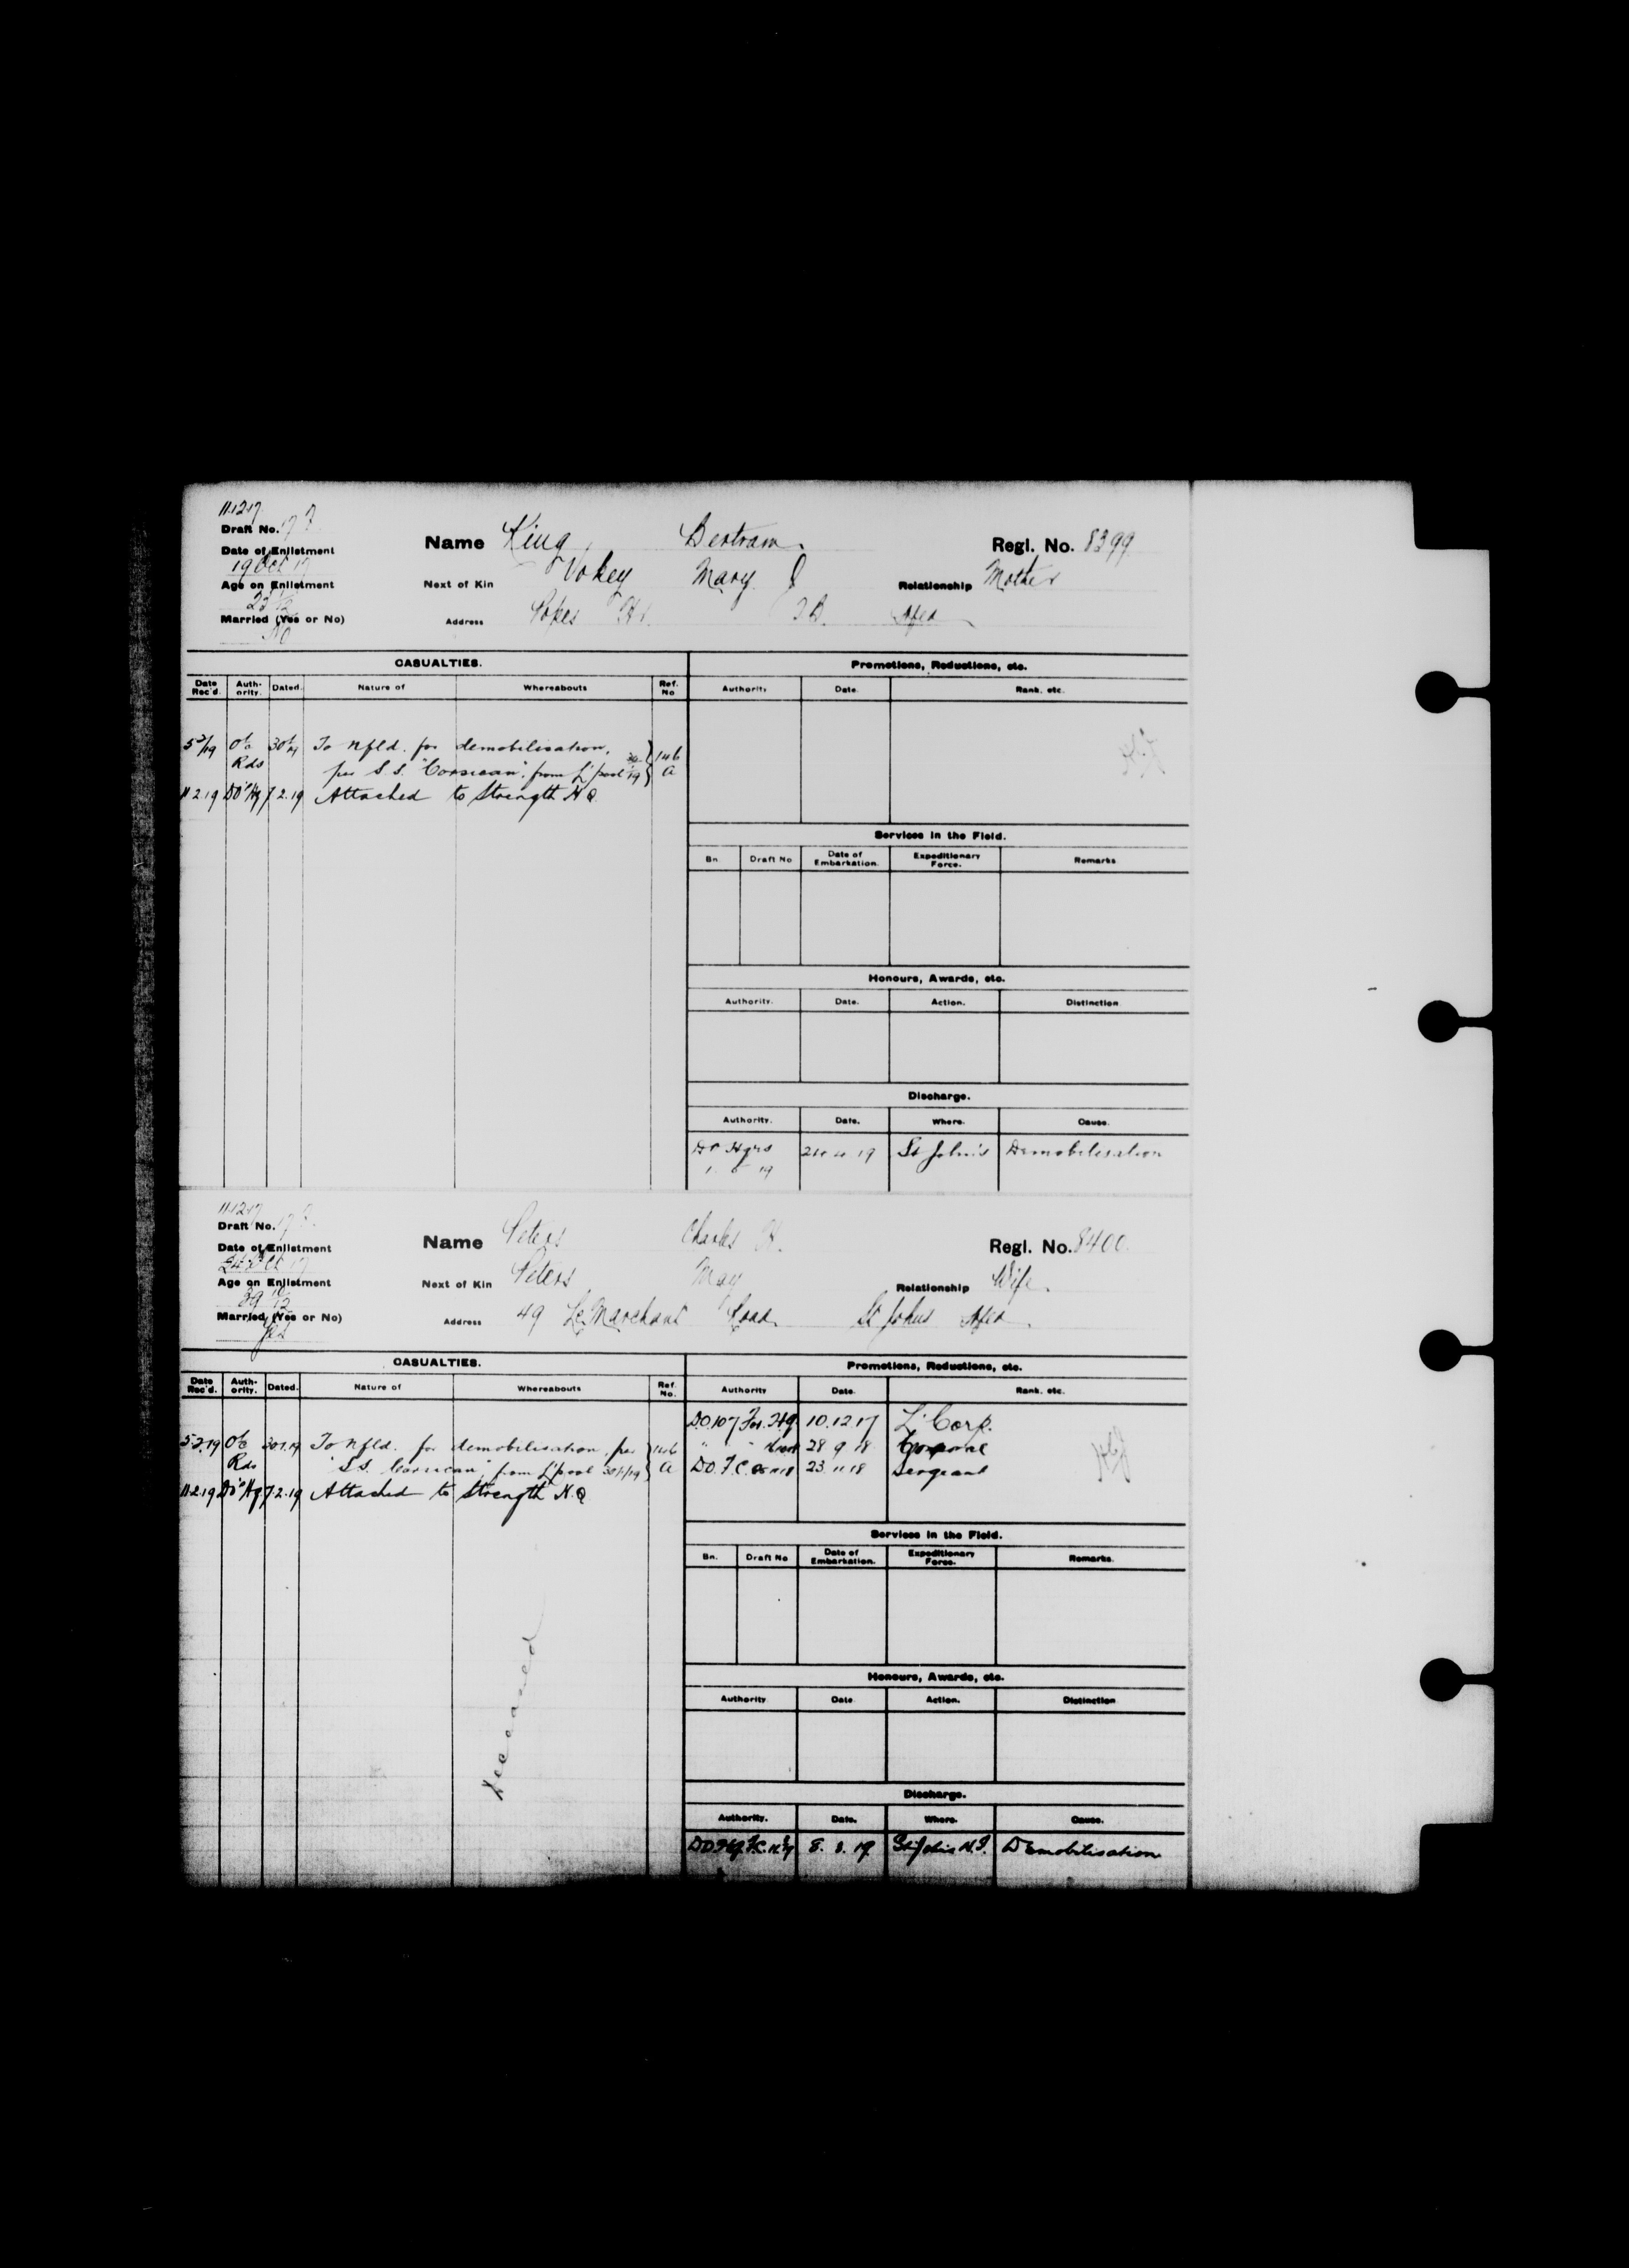 11.12.17
Draft No. 17 F.
Name King, Bertram. Regl. No. 8399
Date of Enlistment
19 Oct 17
Next of Kin Vokey Mary J Relationship Mother
Age on Enlistment
Address Spokes Hr. T.B. Nfld
Married (Yes or No)
No
CASUALTIES. Promotions, Reductions, etc.
Date Rec'd. Auth-ority. Dated. Nature of Whereabouts Ref. No Authority Date. Rank, etc.
O/c Rds To Nfld. for demobilisation, 146
per S.S. "Corsican", from L'pool A
11.2.19 7.2.19 Attached to Strength H.Q.
Services in the Field.
Bn. Draft No Date of Embarkation. Expeditionary Force. Remarks
Honours, Awards, etc.
Authority. Date. Action. Distinction
Discharge.
Authority. Date. Where. Cause.
DO Hqrs 19 St John's Demobilisation
11.12.17
Draft No. 17 F.
Name Peters Charles H. Regl. No. 8400
Date of Enlistment
24 Oct 17
Next of Kin Peters May Relationship Wife.
Age on Enlistment
Address 49 LeMarchant Road St Johns Nfld.
Married (Yes or No)
Yes
CASUALTIES. Promotions, Reductions, etc.
Date Rec'd. Auth-ority. Dated. Nature of Whereabouts Ref. No. Authority Date. Rank, etc.
D.O.107 For. Hq. 10.12.17 L' Corp.
5.2.19 O/c 30.1.19 To Nfld. for demobilisation, per 146 28 9 18 Corporal
Rds "S.S. Corsican", from L'pool 30/1/19 A D.O. F.C. 23.11.18 Sergeant
11.2.19 7.2.19 Attached to Strength H.Q.
Services in the Field.
Bn. Draft No Date of Embarkation. Expeditionary Force. Remarks.
deceased
Honours, Awards, etc.
Authority Date Action. Distinction
Discharge.
Authority. Date. Where. Cause.
8. 8. 19 St Johns N.F. Demobilisation